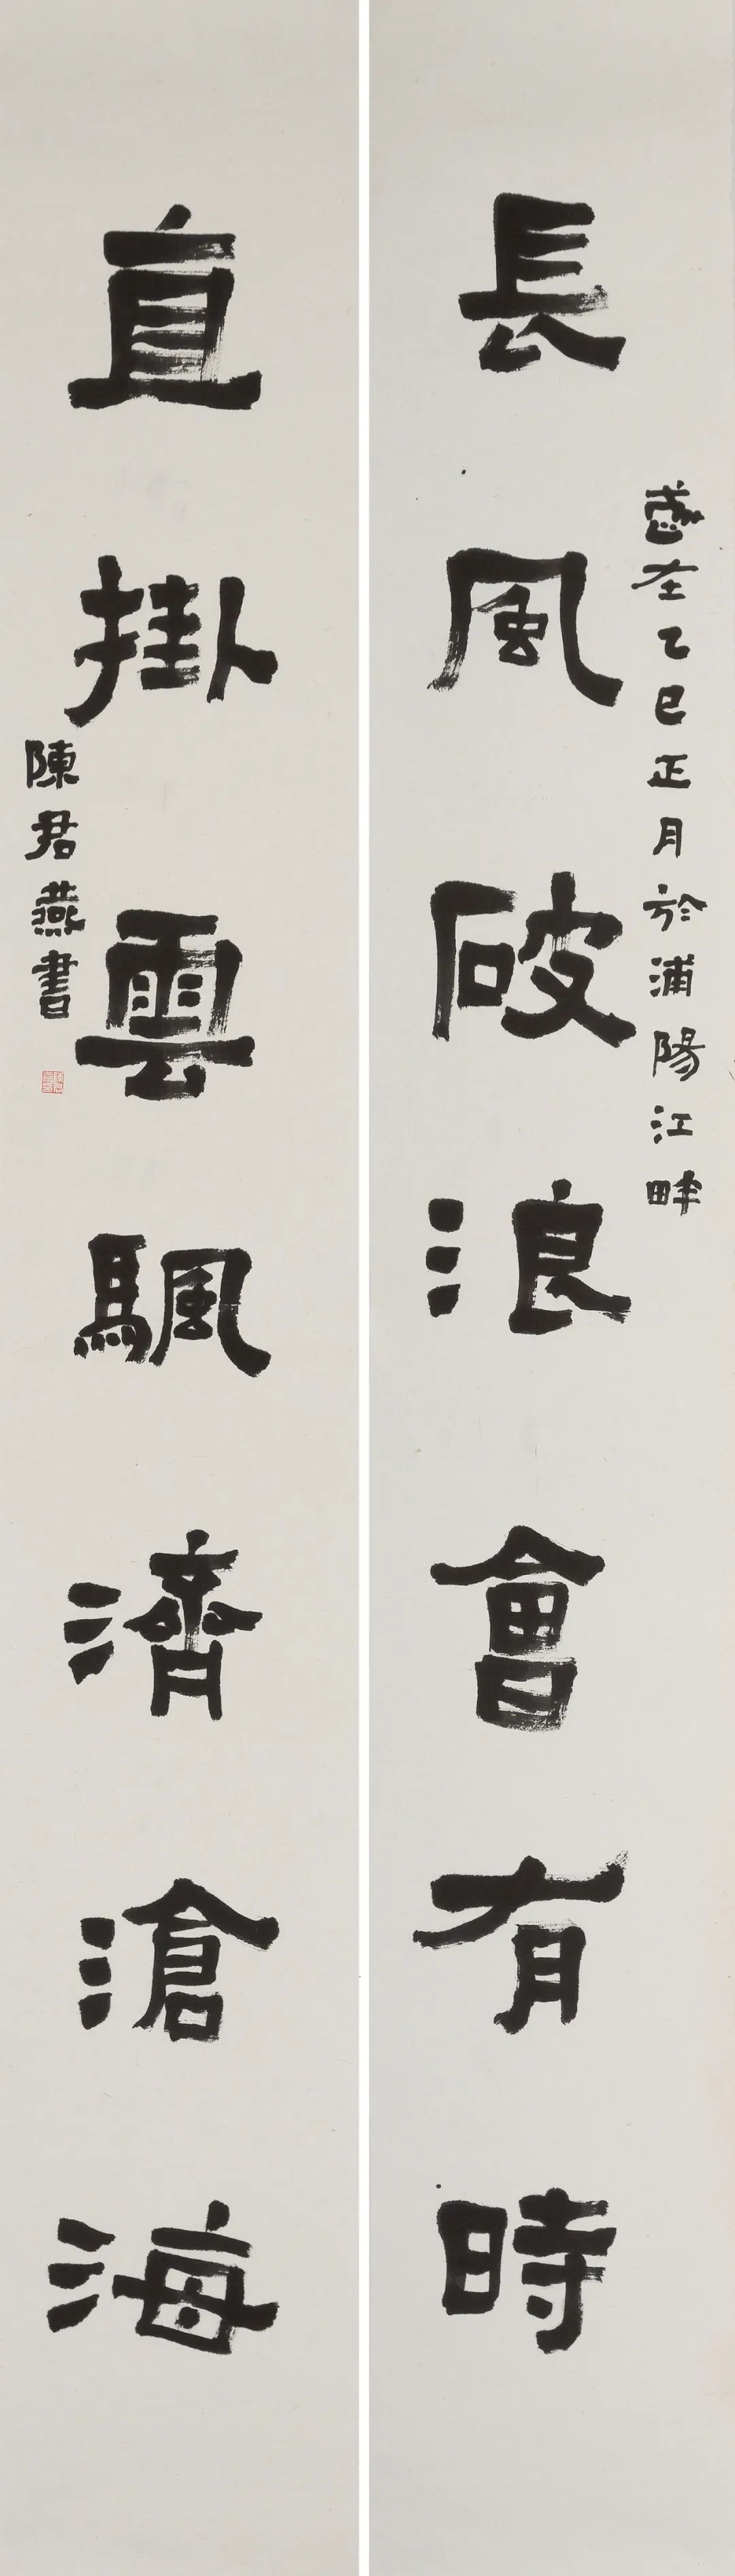 歲在乙巳正月於浦陽江畔
長風破浪會有時
直掛雲颿濟滄海
陳君燕書